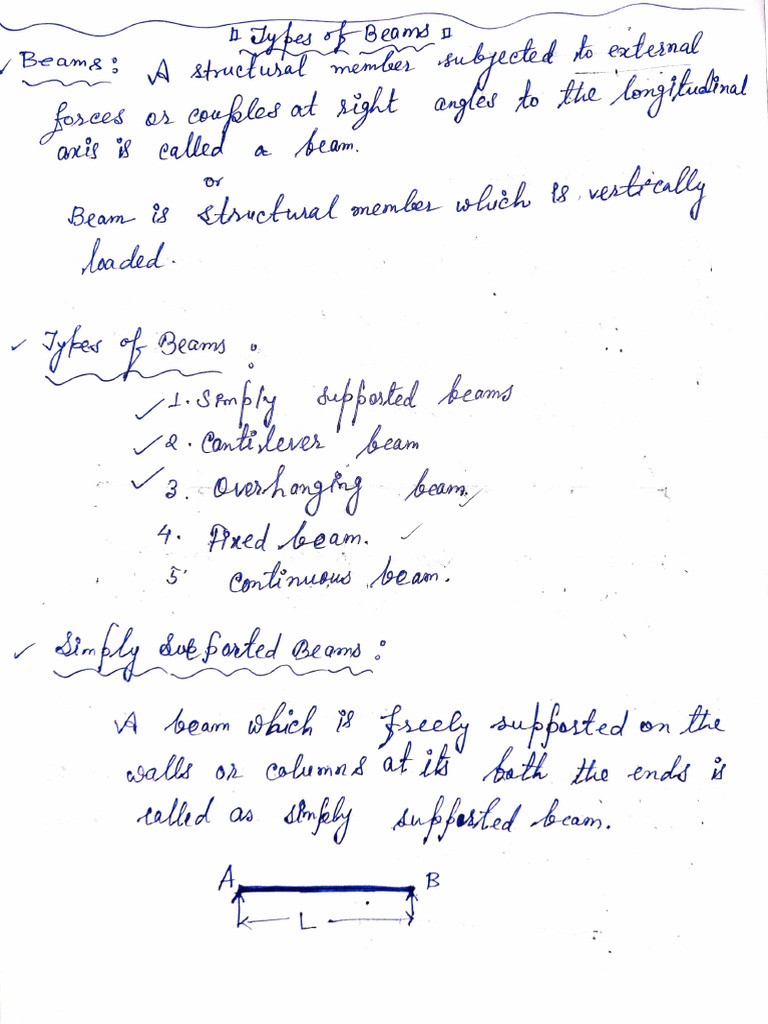 " Types of Beams "
Beams: A structural member subjected to external
forces or couples at right angles to the longitudinal
axis is called a beam.
or
Beam is structural member which is vertically
loaded.
Types of Beams :
1. Simply supported beams
2. Cantilever beam
3. Overhanging beam.
4. Fixed beam.
5 Continuous beam.
Simply Supported Beams :
A beam which is freely supported on the
walls or columns at its both the ends is
called as simply supported beam.
A B
L